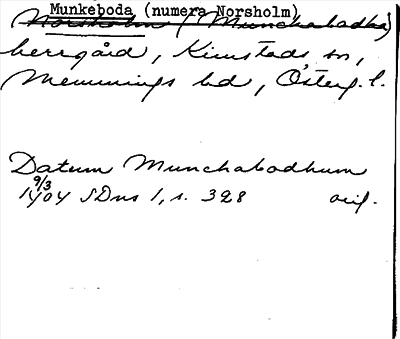 Munkeboda (numera Norsholm)
Norsholm (Munchabodha)
herrgård, Kimstads sn,
Memmings hd, Österg. l.
Datum Munchabodhum
9/3
1404 SDns 1, s. 328 orig.